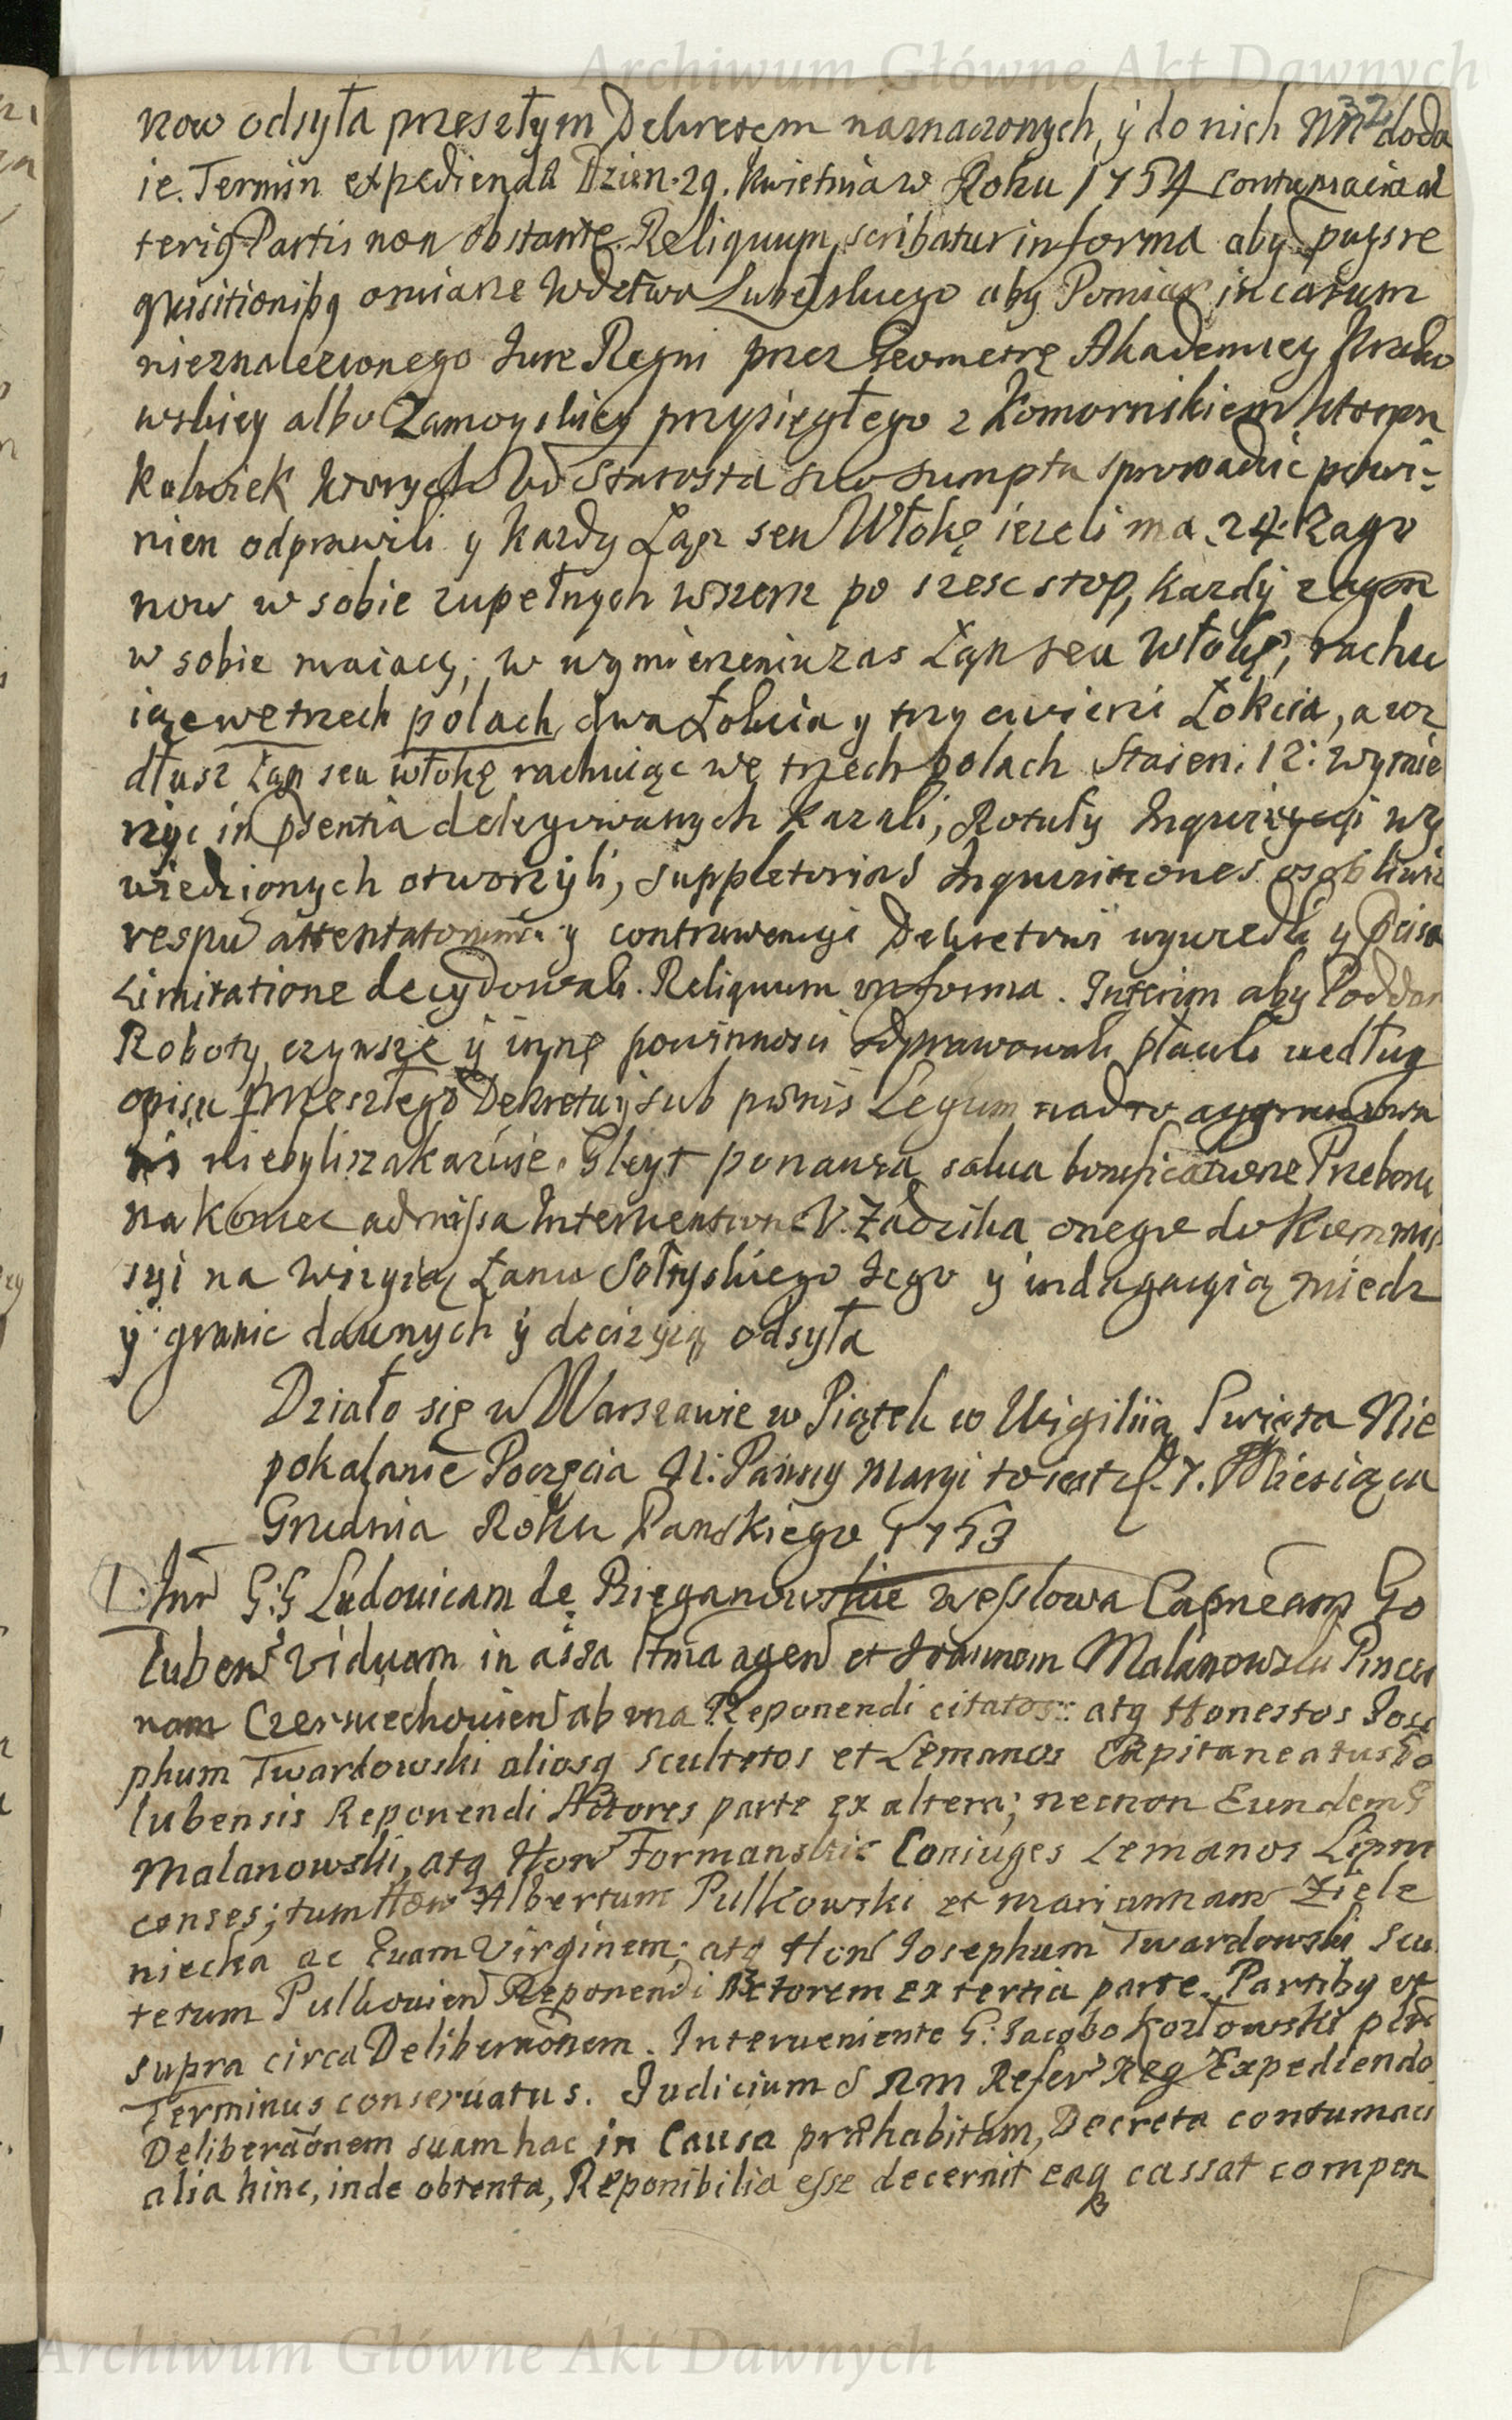 Archiwum Główne Akt Dawnych
now odsyła przeszłym Dekretem naznaczonych, ÿ do nich doda
ie. Termin expediendi Dzien. 29. Kwietnia w Roku 1754 contumacia al
teriq Partis non obstante. Reliquum scribatur in forma aby
quisitionibq omiarze Wdztwa Lubelskiego aby Pomiar in casum
nieznalezionego Jure Regni przez Geometrę Akademiey Krako
wskiey albo Zamoyskiey przysięgłego z Komornikiem ktorym
kolwiek ktorych Vd Starosta suo sumptu sprowadzic powi-
nien odprawili y kazdy Łan seu Włokę iezeli ma. 24. Zago
now w sobie zupełnych wszerz po szesc stop, kazdy zagon
w sobie maiący, w wymierzeniu zas Łan seu Włokę, rachu
iąc we trzech polach, dwa Łokcia y trzy cwierci Łokcia, a wz
dłusz Łan seu włokę rachuiąc we trzech polach Staien. 12. wymie
rzyc in psentia delegowanych kazali, Rotuły Inquizycyi wy
wiedzionych otworzyli, suppletorias Inquisitiones osobliwie
respu attentatorum y contrawencyi Dekretowi
Limitatione decydowali. Reliquum in forma. Interim aby Poddan
Roboty, czynsze y inne powinnosci odprawowali płacili według
opisu przeszłego Dekretu y sub pœnis Legum nadto aggrawowa
ni niebyli zakazuie. Gleyt ponawia salva bonificatione Przeboru
na koniec admissa Interventione V. Zadzika onego do Kommis
syi na wizyią Łanu Sołtyskiego Jego y indagacyią miedz
ÿ granic dawnych ÿ decizyią odsyła
Działo się w Warszawie w Piątek w Wigiliią Swięta Nie
pokalanie Poczęcia N: Panny Maryi to iest d. 7. Miesiąca
Grudnia Roku Panskiego 1753
1. Intr G:G Ludovicam de Bieganowskie Wesslowa Capneam Go
lubens Viduam in assa ltma agen et Joannem Malanowski Pincer
nam Czerniechovien ab una Reponendi citatos: atq Honestos Jose
phum Twardowski aliosq scultetos et Lemanos Capitaneatus Go
lubensis Reponendi Actores parte ex altera; necnon Eundem G
Malanowski, atq Hon Formanskie Coniuges Lemanos Lipni
censes; tum Hon Albertum Pulkowski et mariannam Ziele
niecka ac Evam Virginem; atq Hon Josephum Twardowski Scu
tetum Pulkovien Reponendi Actorem ex tertia parte. Partibq ut
supra circa Deliberaonem. Interveniente G: Jacobo Kozłowski
Terminus conservatus. Judicium S Rm Refer Reg Expediendo
Deliberaonem suam hac in Causa præhabitam, Decreta contumaci
alia hinc, inde obtenta, Reponibilia esse decernit eaq cassat compen
Archiwum Główne Akt Dawnych